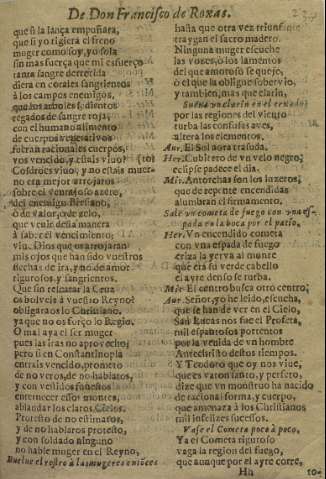 De Don Francisco de Roxas.
que si la lança empuñara,
que si yo rigiera el freno
muger como soy, yo sola
sin mas fuerça que mi esfuerço
tanta sangre derretida
diera en corales sangrientos
à los campos enemigos,
que los arboles sedientos
regados de sangre roja,
con el humano alimento
de cuerpos vegetativos
fueran racionales cuerpos,
vos vencido, y estais vivo? (to)
Cosdroes vivo, y no estais muerto
no era mejor arrojaros
sobre el venturoso azero,
del enemigo
ò de valor, ò de zelo,
que venir desta manera
à saber el vencimiento
viu. Dios que os arrojaran
mis ojos que han sido vuestros
flechas de ira, y no de amor
rigurosos, y sangrientos.
Que sin rescatar la Cruz
os bolveis à vuestro Reyno?
obligaraos lo Christiano,
ya que no os forçò lo Regio.
O mal aya el ser muger
pues las iras no aprovecho;
pero si en Constantinopla
entrais vencido, prometo
de no veros, de no hablaros,
y con vestidos funestos
enternecer essos montes,
ablandar los claros Cielos.
Protesto de no estimaros,
y de no hablaros protesto,
y con soldado ninguno
no hable muger en el Reyno,
Buelve el rostro à las mugeres entõces
hasta que otra vez triunfante
traygan el sacro madero.
Ninguna muger escuche
las vozes, ò los lamentos
del que amoroso se quejo,
ò el que la obligue sobervio,
y tambien, mas que clarin,
Suena un clarin en el
por las regiones del viento
turba las confusas aves,
altera los elementos.
Aur. El Sol aora trasuda.
Her. Cubierto de un velo negro,
eclipse padece el dia.
Mir. Antorchas son los luzeros,
que de repente encendidas
alumbran el firmamento.
Sale un cometa de fuego con una espada en la boca por el patio.
Her. Un encendido cometa
con una espada de fuego
eriza la yerva al monte
que era su verde cabello
el ayre denso se turba.
Mir. El centro busca otro centro,
Aur. Señor, yo he leido, escucha,
que se han de ver en el Cielo,
San Lucas nos fue el Profeta,
mil espantosos portentos
por la venida de un hombre
Antechristo destos tiempos.
Y Teodoro que oy nos vive,
que es varon santo, y perfeto,
dize que un monstruo ha nacido
de racional forma, y cuerpo,
que amenaza à los Christianos
mil infelizes sucessos.
Vase el Cometa poco à poco,
Ya el Cometa riguroso
vaga la region del fuego,
que aunque por el ayre corre,
Hh